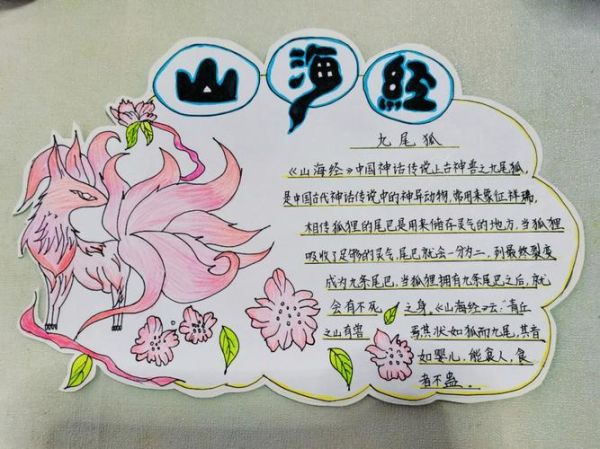 山海經
九尾狐
《山海经》中国神话传说上古神兽之九尾狐,
是中国古代神话传说中的神异动物,常用来象征祥瑞,
相传狐狸的尾巴是用来储存灵气的地方,当狐狸
吸收了足够的灵气尾巴就会一分为二,到最终裂变
成为九条尾巴,当狐狸拥有九条尾巴之后,就
会有不死之身。《山海经》云:"青丘
之山有兽焉其状如狐而九尾,其音
如婴儿,能食人,食
者不蛊。